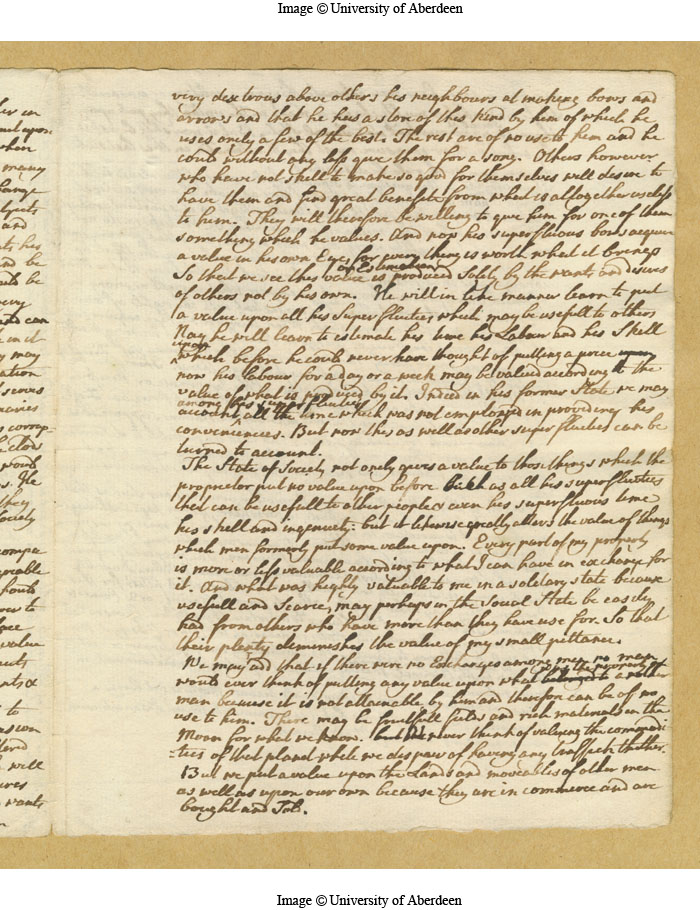 Image © University of Aberdeen
very dextrous above others his neighbours at making bows and
arrows and that he has a store of this kind by him of which he
uses onely a few of the best. The rest are of no use to him and he
could without any loss give them for a song. Others however
who have not skill to make so good for themselves will desire to
have them and find great benefite from what is altogether useless
to him. They will therefore be willing to give him for one of them
something which he values. And now his superfluous bows acquire
a value in his own Eyes, for every thing is worth what it brings
or Estimation
So that we see this value is produced solely by the wants and desires
of others not by his own. He will in like manner learn to put
a value upon all his Superfluities which may be usefull to others
Nay he will learn to estimate his time his Labour and his Skill
upon
which before he could never have thought of putting a price upon
now his labour for a day or a week may be valued according to the
value of what is produced by it. Indeed in his former State we may
among his superfluities
account all the time which was not employed in providing his
conveniences. But now this as well as other superfluities can be
turned to account.
The State of Society not onely gives a value to those things which the
proprietor put no value upon before such as all his superfluities
that can be usefull to other people & even his superfluous time
his skill and ingenuity: but it likewise greatly alters the value of things
which men formerly put some value upon. Every part of my property
is more or less valuable according to what I can have in exchange for
it. And what was highly valuable to me in a solitary state because
usefull and Scarce, may perhaps in the Social State be easily
had from others who have more than they have use for. So that
their plenty diminishes the value of my small pittance.
We may add that if there were no Exchanges among men no man
is the property of
would ever think of putting any value upon what belonged to another
man because it is not attainable by him and therefore can be of no
use to him. There may be fruitfull fields and rich materials in the
Moon for what we know. but we never think of valuing the commodi
-ties of that planet while we despair of having any traffick thither.
But we put a value upon the Lands and moveables of other men
as well as upon our own because they are in commerce and are
bought and Sold.
Image © University of Aberdeen